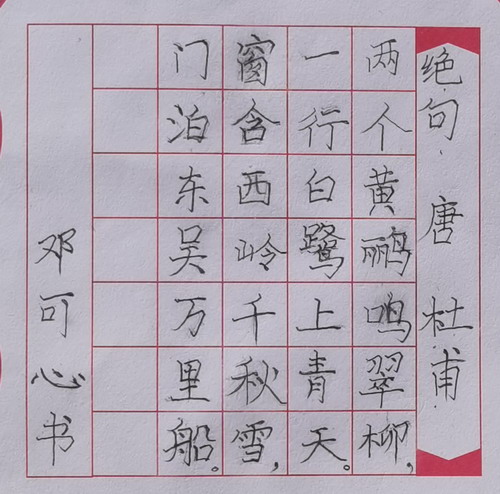 绝句·唐 杜甫
两个黄鹂鸣翠柳,
一行白鹭上青天。
窗含西岭千秋雪,
门泊东吴万里船。
邓可心书